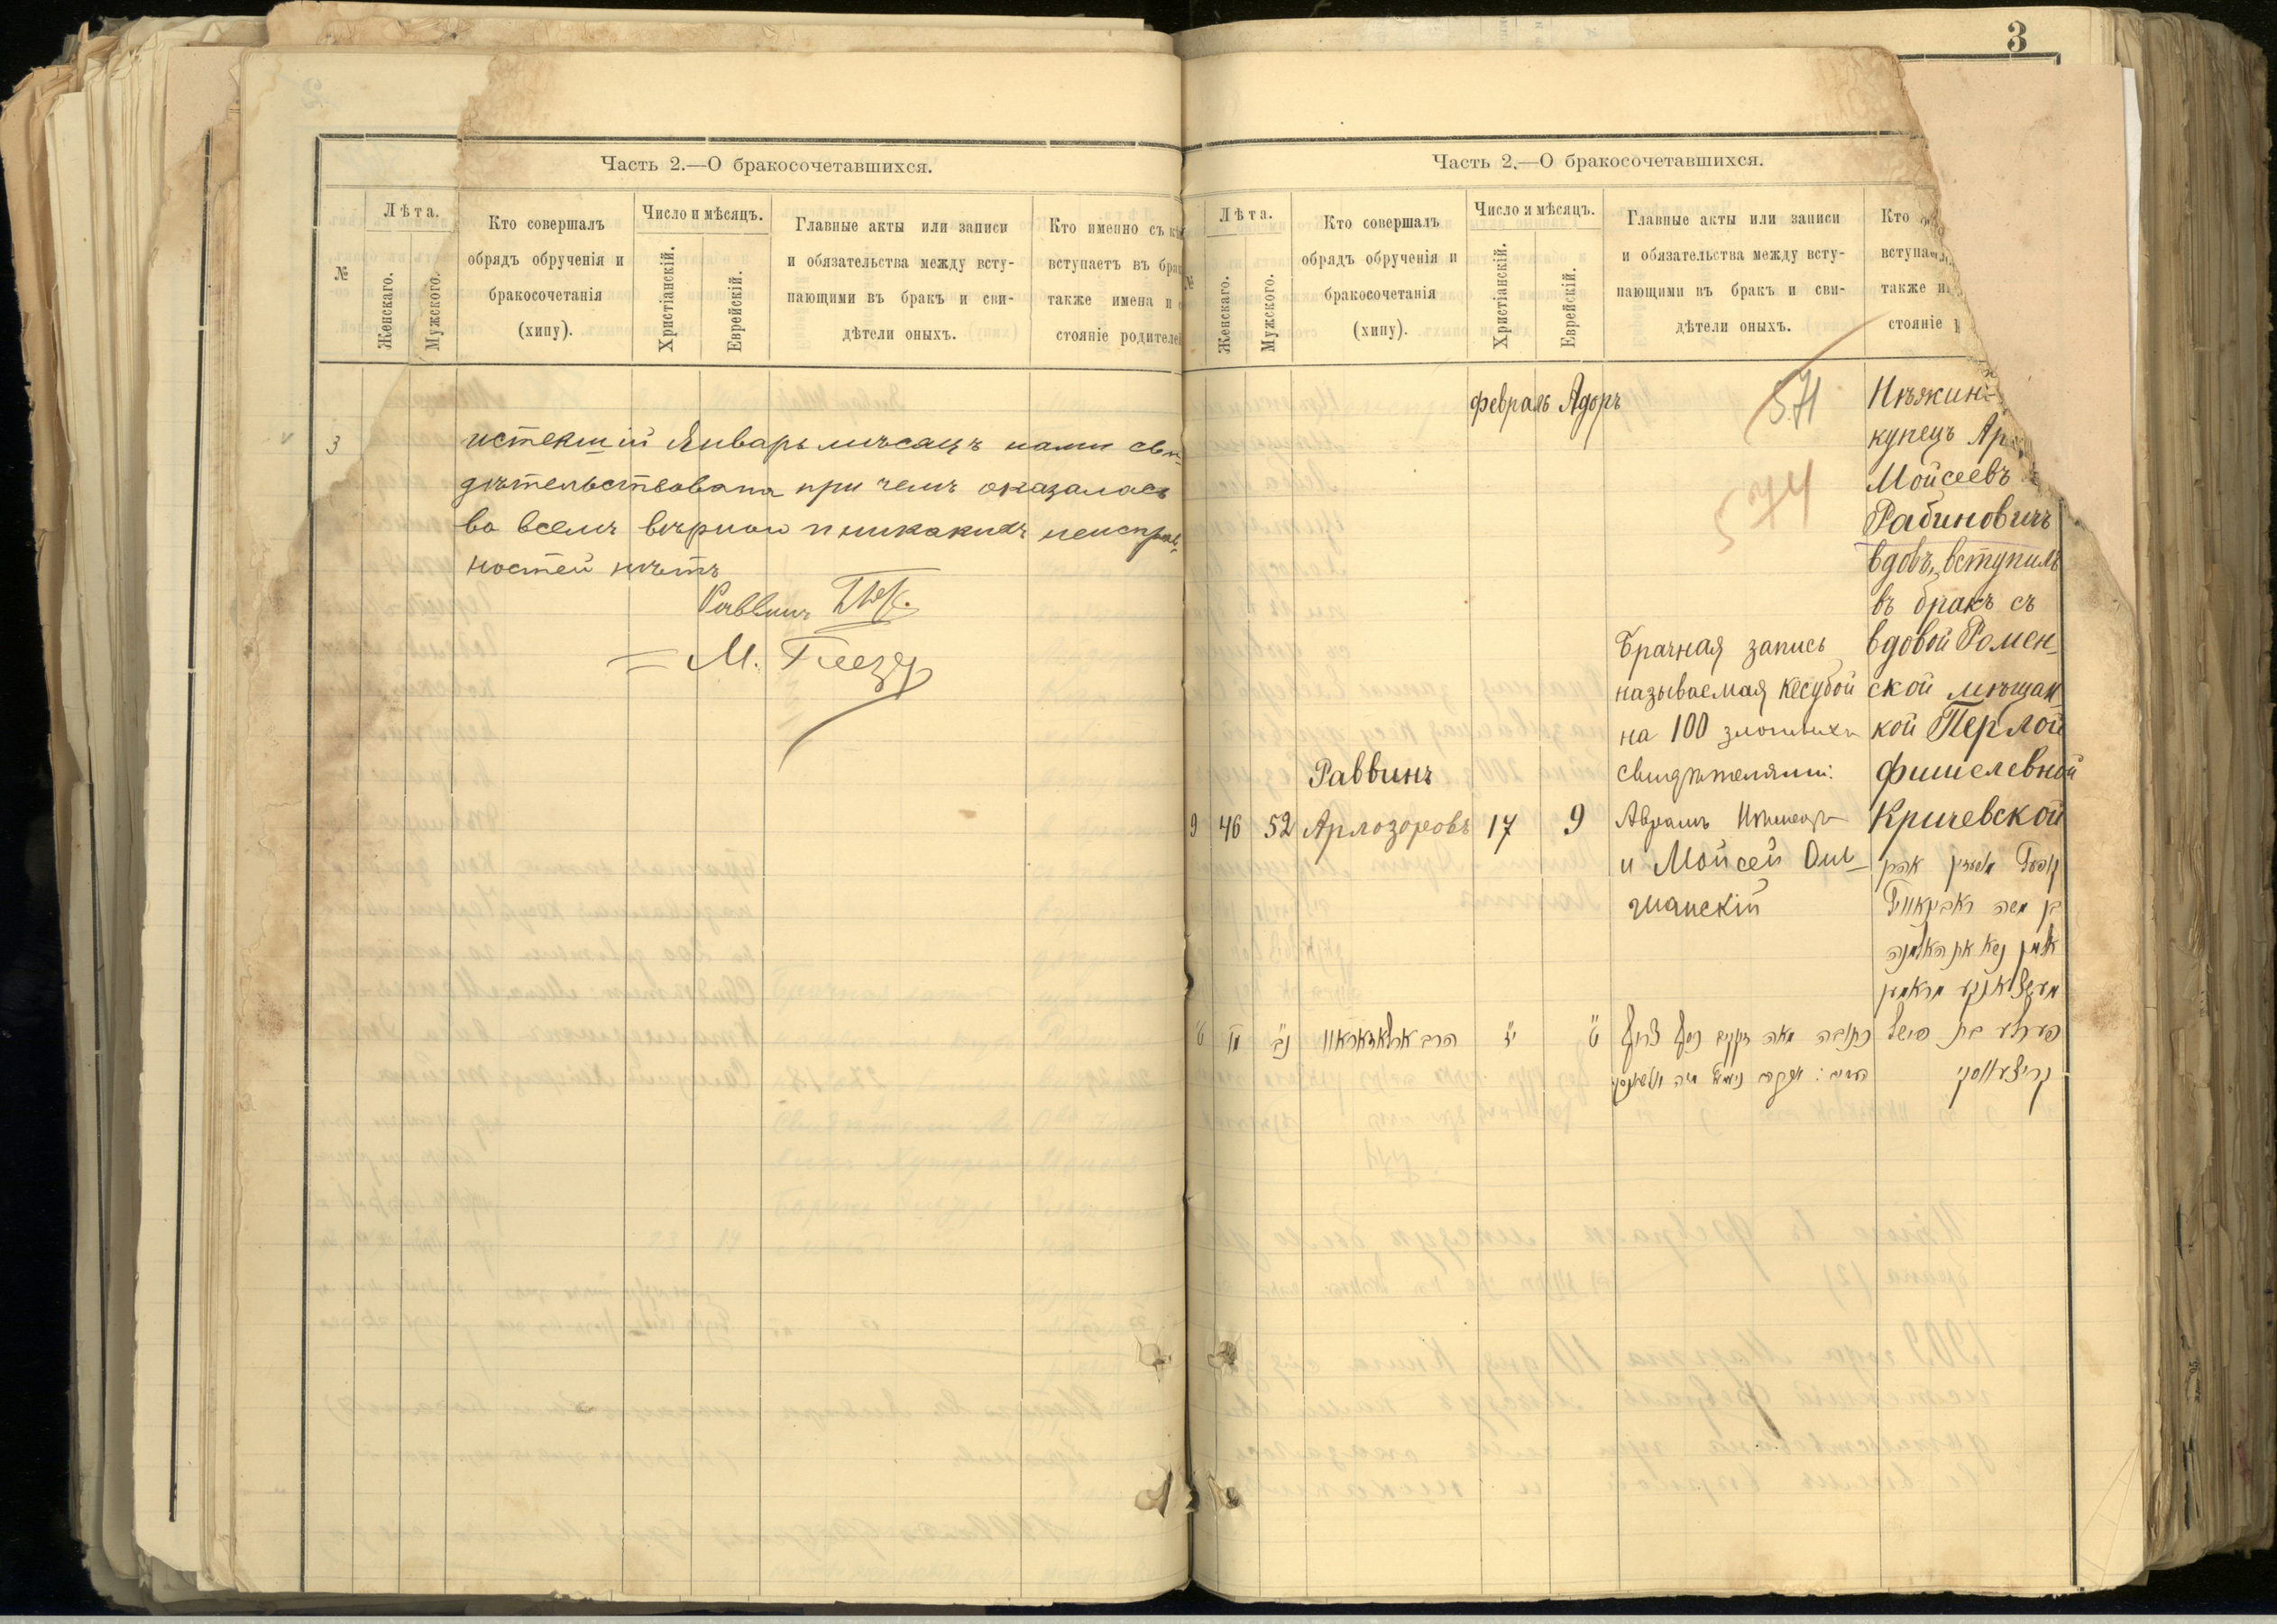 3
Часть 2.—О бракосочетавшихся.
№
Лѣта.
Женскаго.
Мужского.
Кто совершалъ
обрядъ обрученія и
бракосочетанія
(хипу).
Число и мѣсяцъ.
Христіанскій.
Еврейскій.
Главные акты или записи
и обязательства между всту-
пающими въ бракъ и сви-
дѣтели оныхъ.
Кто именно съ
вступаетъ въ
также имена и
стояніе
3
истекшій Январь мѣсяцъ нами сви-
дѣтельствована при чемъ оказалась
во всемъ вѣрной и никакихъ неисправ-
ностей нѣтъ
Раввинъ
М.
Часть 2.—О бракосочетавшихся.
№
Лѣта.
Женскаго.
Мужского.
Кто совершалъ
обрядъ обрученія и
бракосочетанія
(хипу).
Число и мѣсяцъ.
Христіанскій.
Еврейскій.
Главные акты или записи
и обязательства между всту-
пающими въ бракъ и сви-
дѣтели оныхъ.
Кто
также
стояніе
9
46
52
Раввинъ
Арлозоровъ
февраль
17
Адоръ
9
571
574
Брачная запись
называемая кесубой
на 100 злотыхъ
свидѣтелями:
Аврамъ
и Мойсей Оль-
шанскій
Нѣжин-
купецъ
Мойсеевъ
Рабиновичъ
вдовъ, вступилъ
въ бракъ съ
вдовой Ромен-
ской мѣщан-
кой Перлой
Фишелевной
Кричевской
בן משה ראבינאוויץ
נ"ב
הרב ארלאזאראוו
י"ז
ט
כתובה מאה זקוקים כסף צרוף
פערלע בת פישל
קריצעווסקי